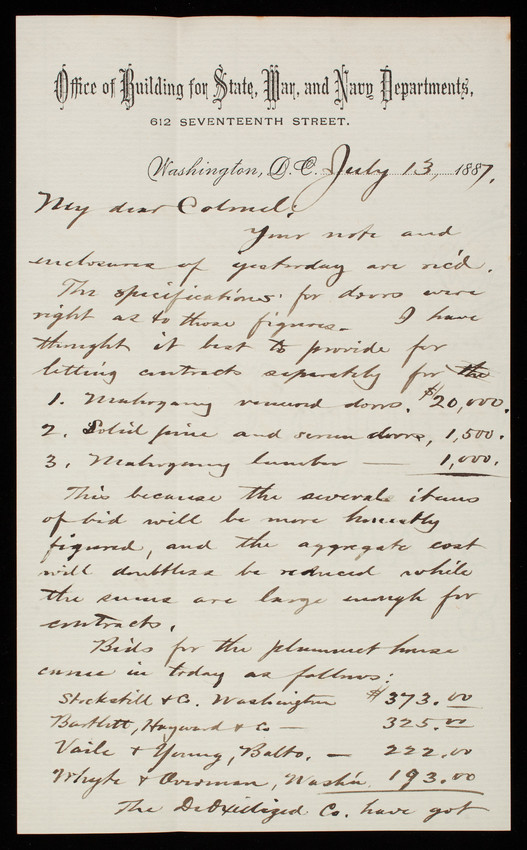 Office of Building for State, War, and Navy Departments,
612 SEVENTEENTH STREET.
Washington, D.C. July 13, 1887.
My dear Colonel:
Your note and
enclosures of yesterday are rec'd.
The specifications for doors were
right as to those figures. I have
thought it best to provide for
letting contracts separately for the
1. Mahogany veneered doors. $20,000.
2. Solid pine and screen doors, 1,500.
3. Mahogany lumber — 1,000.
This because the several items
of bid will be more honestly
figured, and the aggregate cost
will doubtless be reduced while
the sums are large enough for
contracts.
Bids for the plummet house
came in today as follows:
Stockstill & Co. Washington $373.00
Bartlett, Hayward & Co — 325.00
Vaile & Young, Balto. — 222.00
Whyte & Overman, Wash'n 193.00
The DeOxidized Co. have got